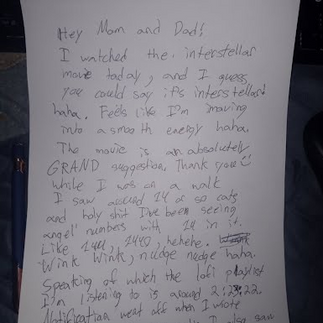 Hey Mom and Dad!
I watched the interstellar
movie today, and I guess
you could say it's interstellar!
haha. Feels like I'm moving
into a smooth energy haha.
The movie is an absolutely
GRAND suggestion. Thank you
While I was on a walk
I saw around 14 or so cats
and holy shit I've been seeing
angel numbers with 14 in it.
Like 1414, 1440, hehehe.
Wink Wink, nudge nudge haha.
Speaking of which the lofi playlist
I'm listening to is around 2:22:22.
Notification went off when I wrote
I also saw